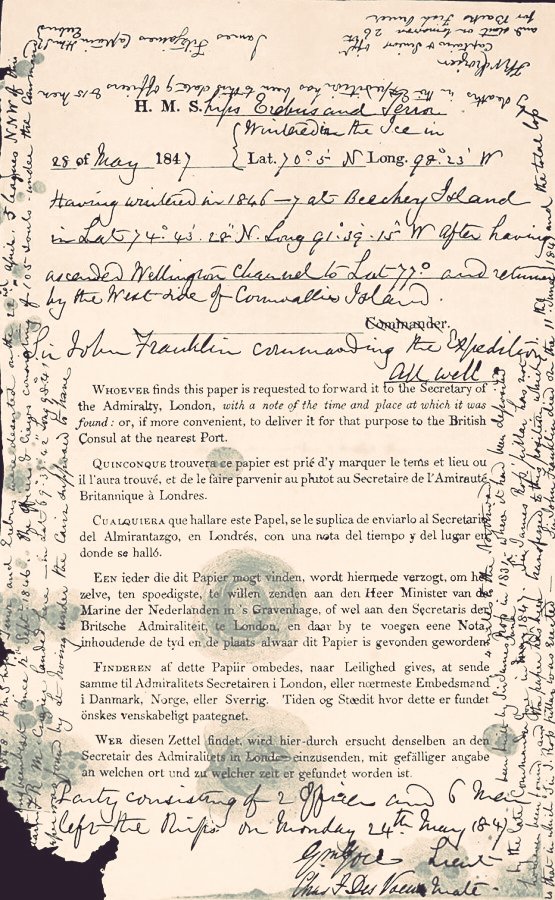 H. M. Ships Erebus and Terror
Wintered in the Ice in
28 of May 1847 Lat. 70° 5' N Long. 98° 23' W
Having wintered in 1846–7 at Beechey Island
in Lat 74° 43' 28" N. Long 91° 39' 15" W after having
ascended Wellington Channel to Lat 77° and returned
by the West side of Cornwallis Island.
Commander.
Sir John Franklin commanding the Expedition
All well
WHOEVER finds this paper is requested to forward it to the Secretary of
the Admiralty, London, with a note of the time and place at which it was
found: or, if more convenient, to deliver it for that purpose to the British
Consul at the nearest Port.
QUINCONQUE trouvera ce papier est prié d'y marquer le tems et lieu ou
il l'aura trouvé, et de le faire parvenir au plutot au Secretaire de l'Amirauté
Britannique à Londres.
CUALQUIERA que hallare este Papel, se le suplica de enviarlo al Secretario
del Almirantazgo, en Londrés, con una nota del tiempo y del lugar en
donde se halló.
EEN ieder die dit Papier mogt vinden, wordt hiermede verzogt, om het
zelve, ten spoedigste, te willen zenden aan den Heer Minister van de
Marine der Nederlanden in 's Gravenhage, of wel aan den Secretaris der
Britsche Admiraliteit, te London, en daar by te voegen eene Nota,
inhoudende de tyd en de plaats alwaar dit Papier is gevonden geworden.
FINDEREN af dette Papiir ombedes, naar Leilighed gives, at sende
samme til Admiralitets Secretairen i London, eller nœrmeste Embedsmand
i Danmark, Norge, eller Sverrig. Tiden og Stœdit hvor dette er fundet
önskes venskabeligt paategnet.
WER diesen Zettel findet, wird hier-durch ersucht denselben an den
Secretair des Admiralitets in London einzusenden, mit gefälliger angabe
an welchen ort und zu welcher zeit er gefundet worden ist.
Party consisting of 2 Officers and 6 Men
left the Ships on Monday 24th May 1847
Gm Gore Lieut
Chas F Des Voeux Mate
H M Ships Terror and Erebus were deserted on the 22nd April 5 leagues NNW of this
having been beset since 12th Sept 1846. The Officers & Crews consisting of 105 souls under the Command
of Captain F. R. M. Crozier landed here in Lat 69° 37' 42" Long 98° 41'
This paper was found by Lt Irving under the Cairn supposed to have
been built by Sir James Ross in 1831 where it had been deposited
4 miles to the Northward
by the late Commander Gore in May June 1847. Sir James Ross' pillar has not
however been found and the paper has been transferred to this position which
is that in which Sir J. Ross' pillar was erected. Sir John Franklin died on the 11th June 1847 and the total loss
by deaths in the Expedition has been to this date 9 officers & 15 men.
James Fitzjames Captain HMS Erebus
F R M Crozier
Captain & Senior Offr
and start on tomorrow 26th
for Backs Fish River